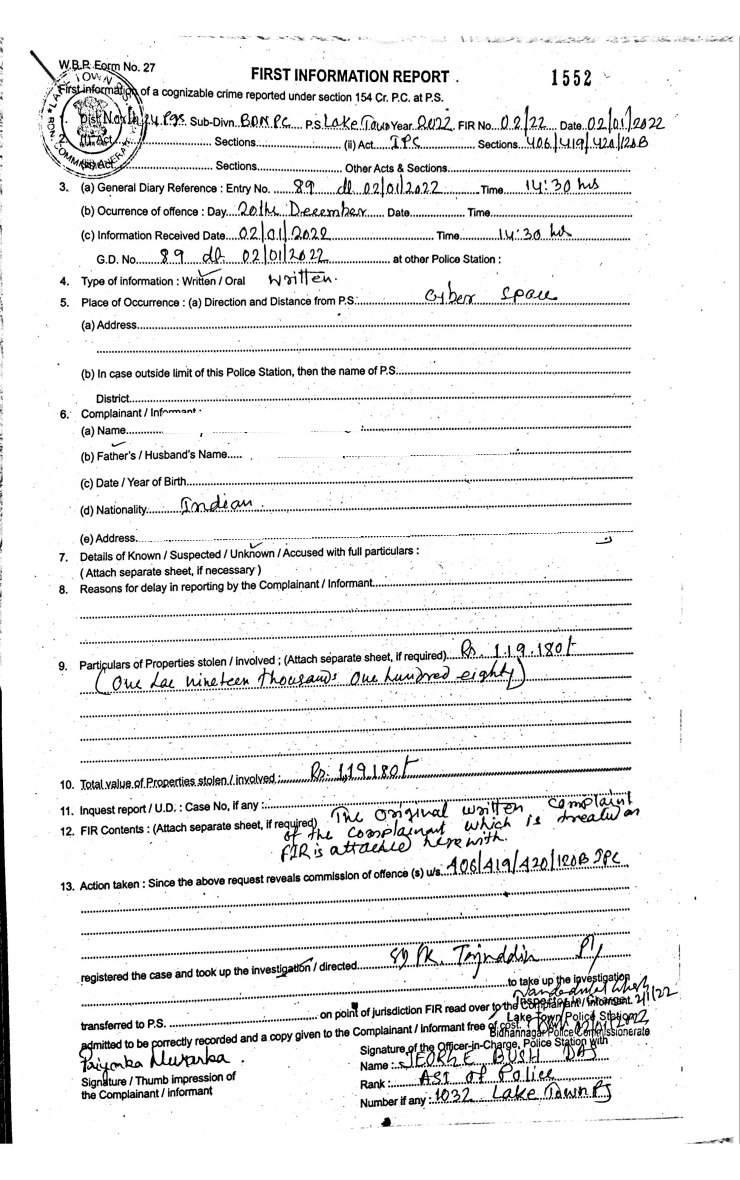 W.B.P. Form No. 27
FIRST INFORMATION REPORT . 1552
First information of a cognizable crime reported under section 154 Cr. P.C. at P.S.
1. Dist North 24 Pgs. Sub-Divn. BDNPC P.S. Lake Town Year 2022 FIR No. 02/22 Date 02/01/2022
2. (i) Act Sections (ii) Act IPC Sections 406/419/420/120B
(iii) Act Sections Other Acts & Sections
3. (a) General Diary Reference : Entry No. 89 dt 02/01/2022 Time 14:30 hrs
(b) Ocurrence of offence : Day 20th December Date Time
(c) Information Received Date 02/01/2022 Time 14:30 hrs
G.D. No. 89 dt 02/01/2022 at other Police Station :
4. Type of information : Written / Oral Written.
5. Place of Occurrence : (a) Direction and Distance from P.S. Cyber Space
(a) Address
(b) In case outside limit of this Police Station, then the name of P.S.
District
6. Complainant / Informant
(a) Name
(b) Father's / Husband's Name
(c) Date / Year of Birth
(d) Nationality Indian .
(e) Address
7. Details of Known / Suspected / Unknown / Accused with full particulars :
( Attach separate sheet, if necessary )
8. Reasons for delay in reporting by the Complainant / Informant
9. Particulars of Properties stolen / involved ; (Attach separate sheet, if required) Rs. 1.19.180/-
(One Lac nineteen thousands One hundred eighty)
10. Total value of Properties stolen / involved : Rs. 1,19,180/-
11. Inquest report / U.D. : Case No, if any :
12. FIR Contents : (Attach separate sheet, if required) The original written complaint
of the complainant which is treated as
FIR is attached herewith.
13. Action taken : Since the above request reveals commission of offence (s) u/s. 406/419/420/120B IPC
registered the case and took up the investigation / directed SI Pk. Tajuddin
to take up the investigation
transferred to P.S. on point of jurisdiction FIR read over to the Complainant / Informant. 2/1/22
Inspector in Charge
Lake Town Police Station
admitted to be correctly recorded and a copy given to the Complainant / Informant free of cost.
Bidhannagar Police Commissionerate
Signature of the Officer-in-Charge, Police Station with
Priyonka
Name : JEORGE BUSH DAS
Signature / Thumb impression of
the Complainant / informant
Rank : ASI of Police
Number if any : 1032 Lake Town PS